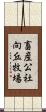 畜産公社
向丘牧場